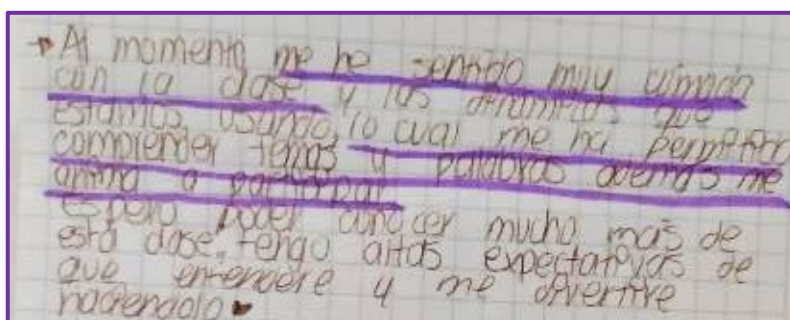 Al momento me he sentido muy comoda
con la clase y las dinamicas que
estamos usando, lo cual me ha permitido
comprender temas y palabras ademas me
anima a participar
Espero poder conocer mucho mas de
esta clase, tengo altas expectativas de
que entendere y me divertire
haciendolo